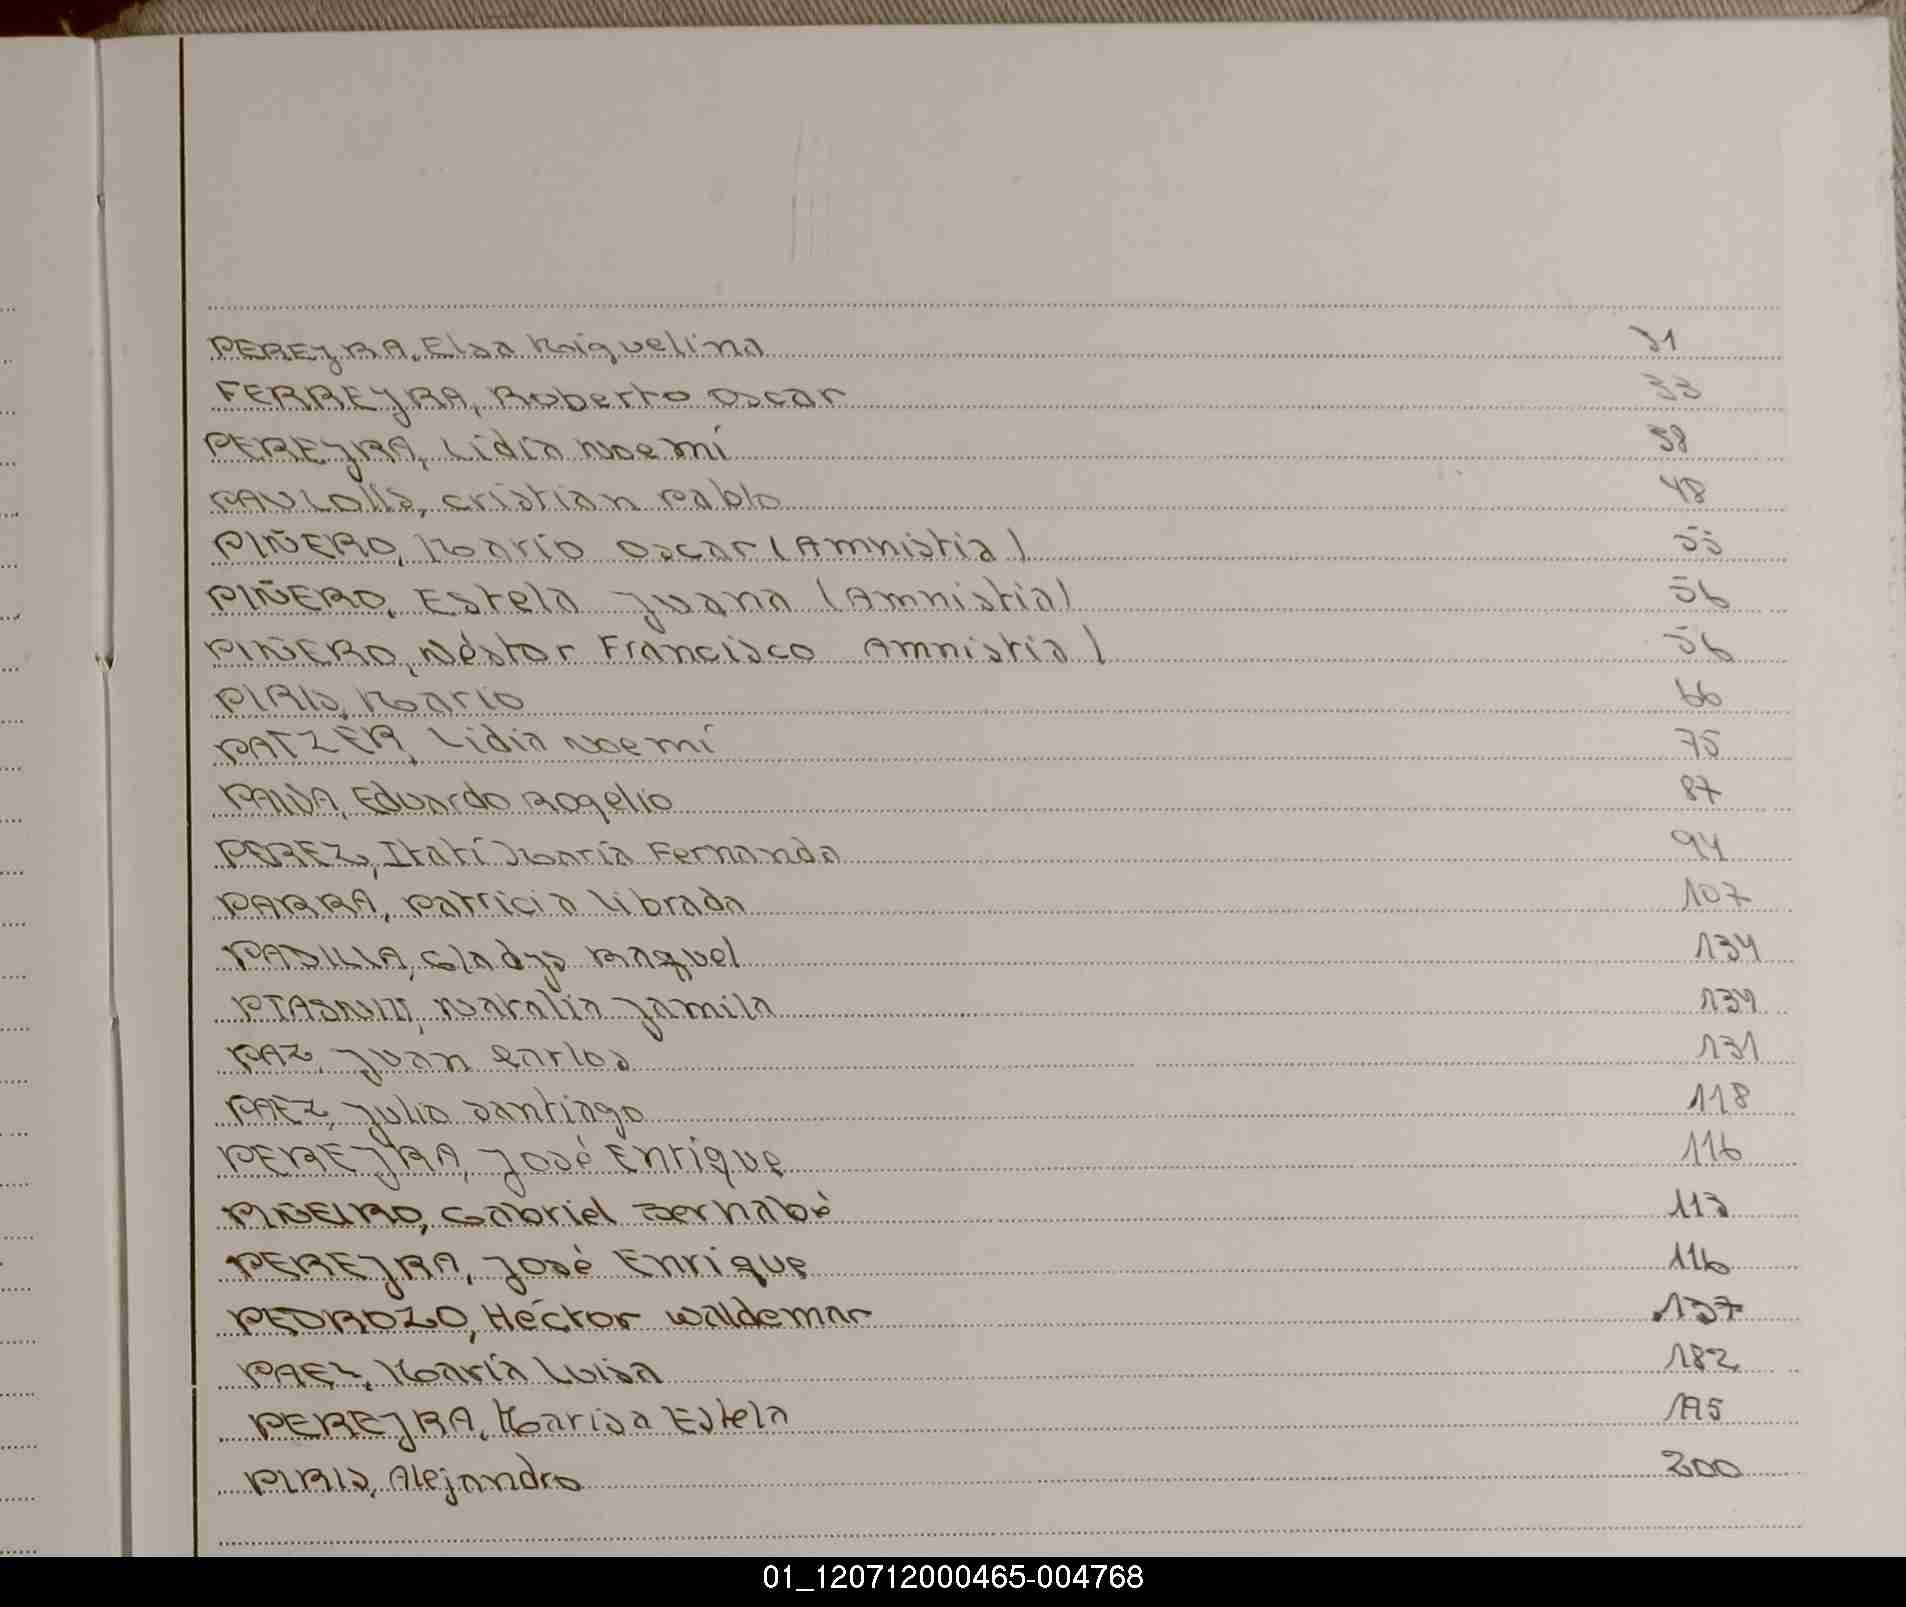 PEREYRA, Elsa Miguelina 31
FERREYRA, Roberto Oscar 33
PEREYRA, Lidia Noemí 38
Cristian Pablo 48
PIÑERO, Mario Oscar (Amnistia) 55
PIÑERO, Estela Juana (Amnistia) 56
PIÑERO, Néstor Francisco Amnistia) 56
PIRIS, Mario 66
PATZER, Lidia Noemí 75
Eduardo Rogelio 87
PEREZ, Itatí María Fernanda 94
PARRA, Patricia Librada 107
PADILLA, Gladys Raquel 134
Natalia Jamila 134
PAZ, Juan Carlos 131
PAEZ, Julio Santiago 118
PEREYRA, José Enrique 116
PIÑEIRO, Gabriel Bernabé 113
PEREYRA, José Enrique 116
PEDROZO, Héctor Waldemar 137
PAEZ, María Luisa 182
PEREYRA, Marisa Estela 195
PIRIS, Alejandro 200
01_120712000465-004768